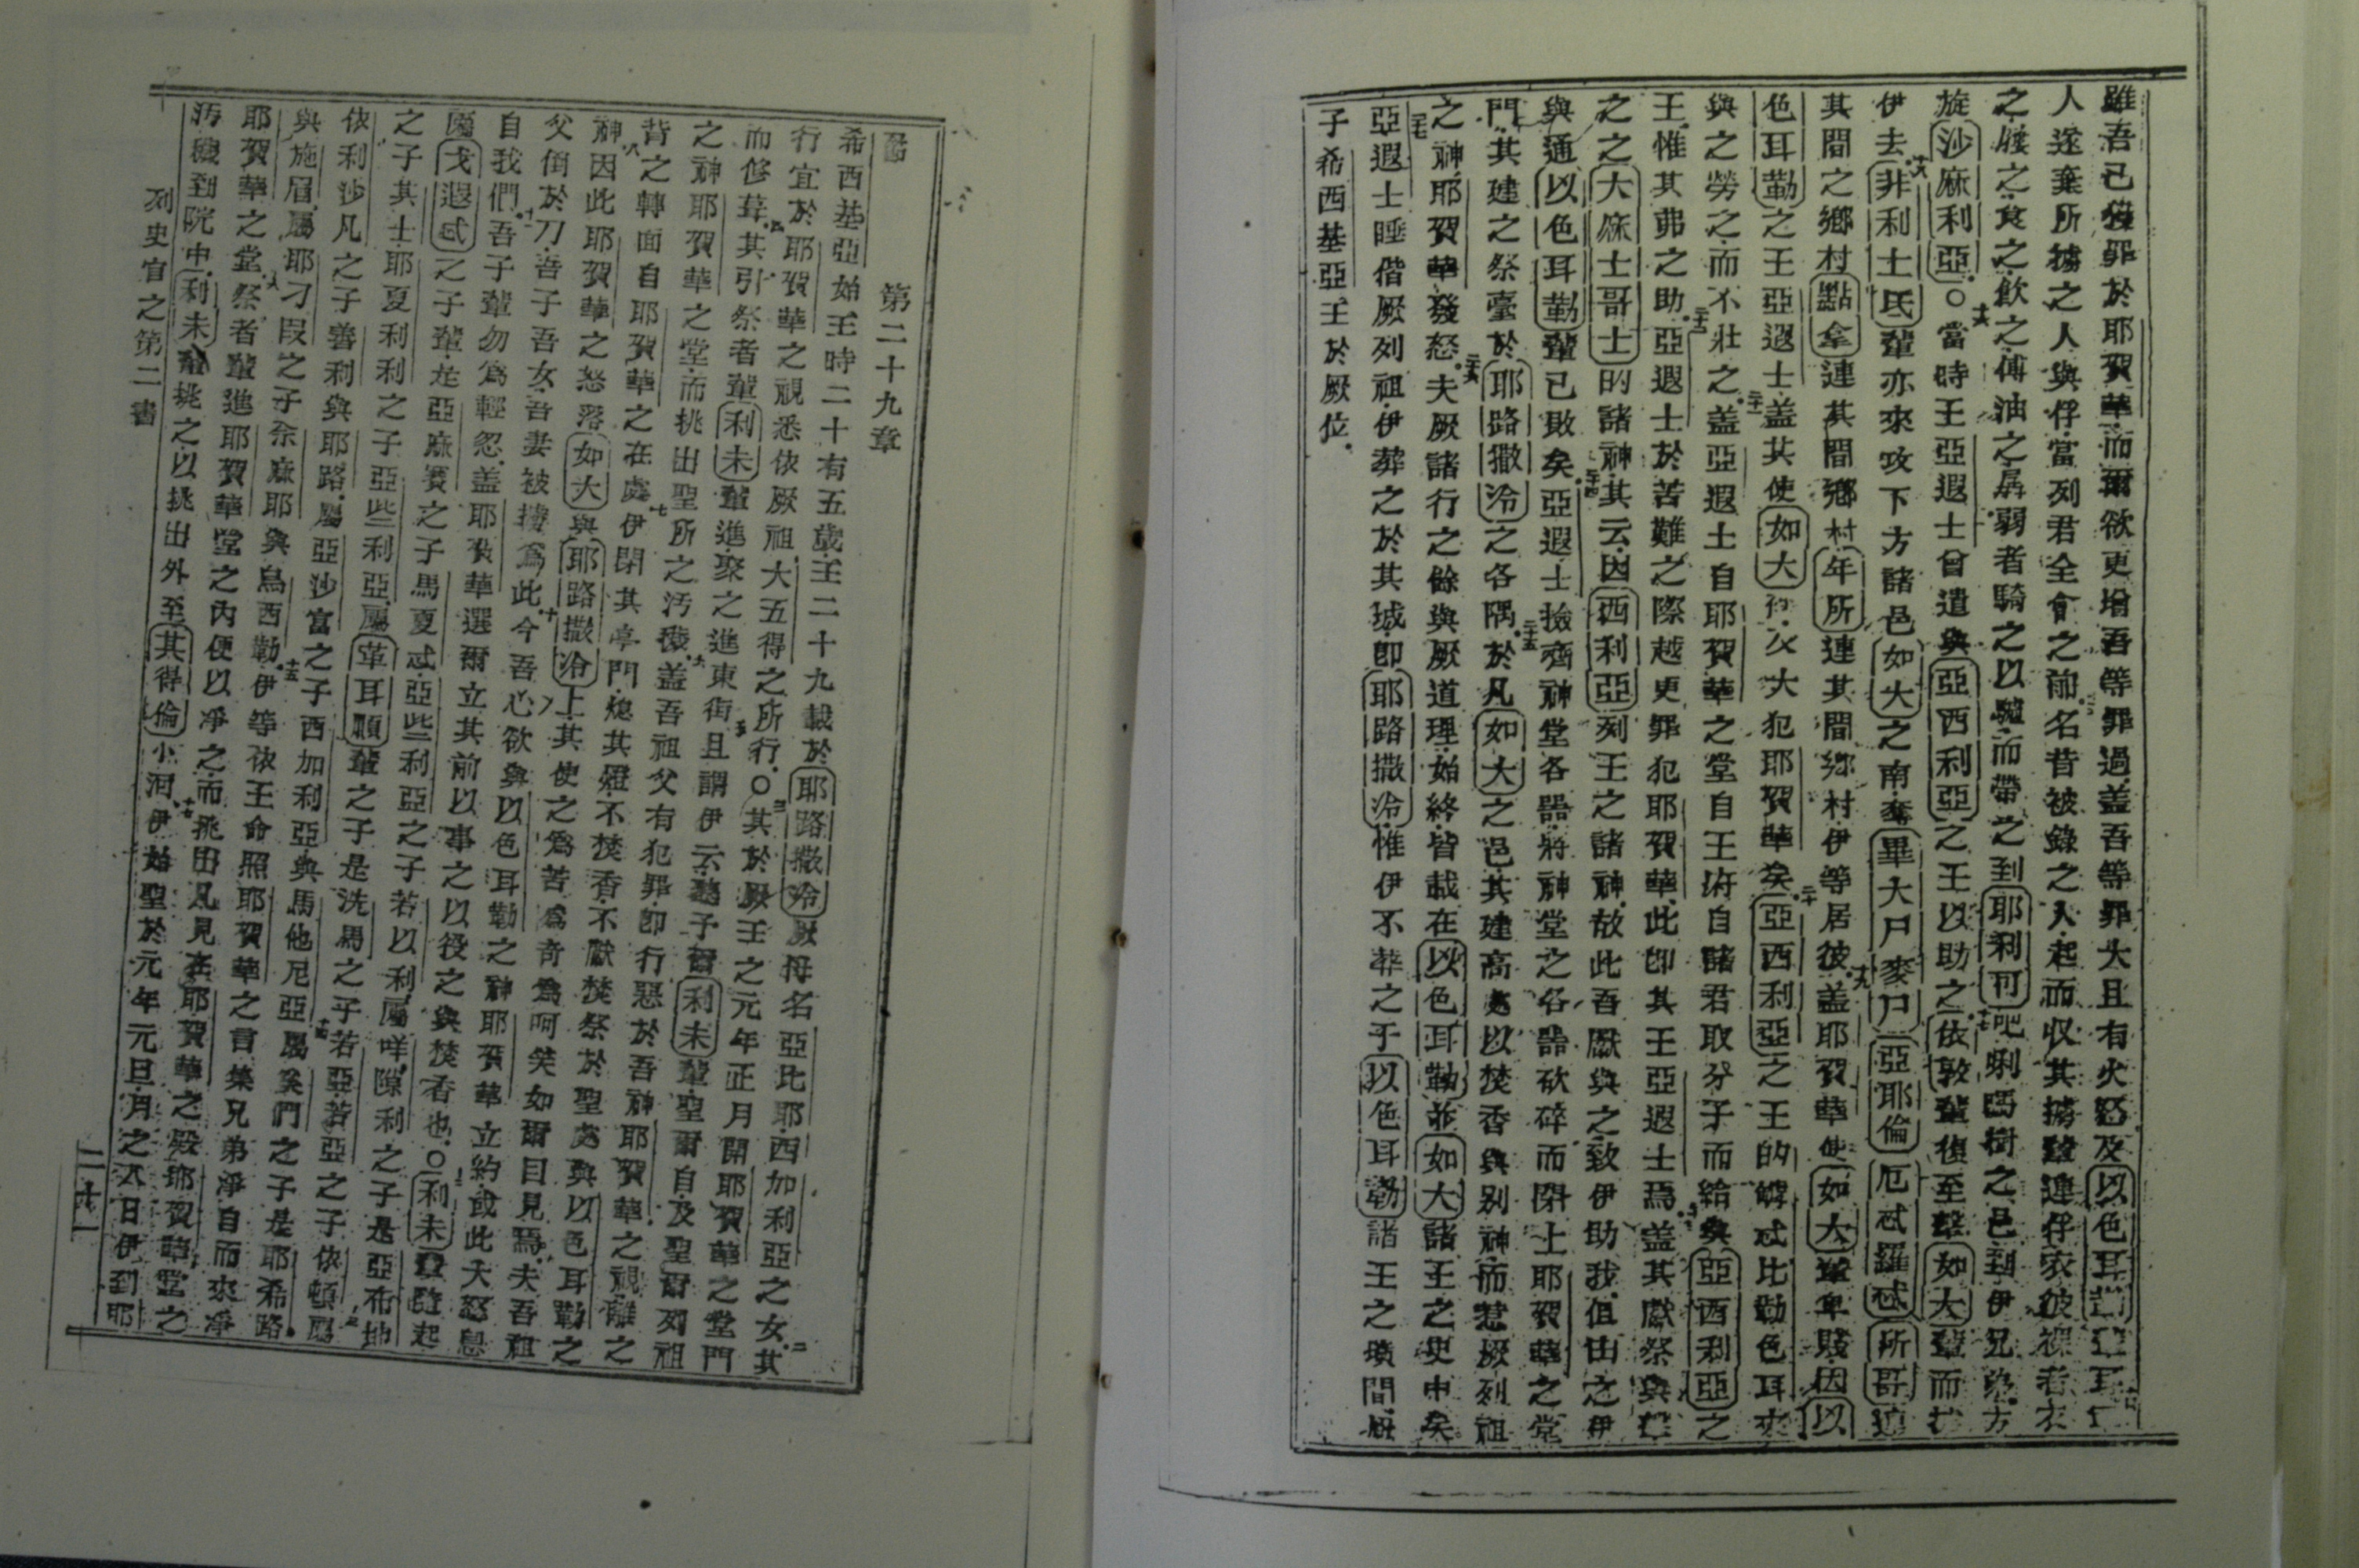 雖吾已獲罪於耶賀華而爾欲更增吾等罪過盖吾等罪大且有火怒及以色耳勒
人遂棄所擄之人與俘當列君全會之前名昔被錄之人起而収其擄輩連俘衣彼裸者衣
之屨之食之飲之傅油之孱弱者騎之以驢而帶之到耶利可吧唎嗎樹之邑到伊兄弟方
旋沙麻利亞〇當時王亞遐士曾遣與亞西利亞之王以助之依敦輩復至擊如大輩而
伊去非利士民輩亦來攻下方諸邑如大之南奪畢大尸麥尸亞耶倫厄忒羅忒所哥
其間之鄉村點拿連其間鄉村年所連其間鄉村伊等居彼盖耶賀華使如大輩卑賤因以
色耳勒之王亞遐士盖其使如大 大犯耶賀華矣亞西利亞之王的 忒比勒色耳來
與之勞之而不壯之盖亞遐士自耶賀華之堂自王府自諸君取分子而給與亞西利亞之
王惟其弗之助亞遐士於苦難之際越更罪犯耶賀華此即其王亞遐士焉盖其獻祭與
之之大麻士哥士的諸神其云因西利亞列王之諸神故此吾獻與之致伊助我但由之伊
與通以色耳勒輩已敗矣亞遐士撿齊神堂各器將神堂之各器砍碎而閉上耶賀華之堂
門其建之祭臺於耶路撒冷之各隅於凡如大之邑其建高處以焚香與别神而惹厥列祖
之神耶賀華發怒夫厥諸行之餘與厥道理始終皆載在以色耳勒並如大諸王之史中矣
亞遐士睡偕厥列祖伊葬之於其城即耶路撒冷惟伊不葬之于以色耳勒諸王之墳間厥
子希西基亞王於厥位
第二十九章
希西基亞始王時二十有五歲王二十九載於耶路撒冷厥母名亞比耶西加利亞之女其
行宜於耶賀華之視悉依厥祖大五得之所行〇其於厥王之元年正月開耶賀華之堂門
而修葺其引祭者輩利未輩進聚之進東街且謂伊云聽予爾利未輩聖爾自及聖爾列祖
之神耶賀華之堂而挑出聖所之汚穢盖吾祖父有犯罪即行惡於吾神耶賀華之視離之
背之轉面自耶賀華之在處伊閉其卓門熄其燈不焚香不獻焚祭於聖處與以色耳勒之
神因此耶賀華之怒落如大與耶路撒冷上其使之爲苦爲奇爲呵笑如爾目見焉夫吾祖
父倒於刀吾子吾女吾妻被擄爲此今吾心欲與以色耳勒之神耶賀華立約或此大怒息
自我們吾子輩勿爲輕忽盖耶賀華選爾立其前以事之以役之與焚香也〇利未輩起
屬戈遐忒之子輩 亞麻賽之子馬夏忒亞些利亞之子若以利屬咩隙利之子是亞布地
之子其士耶夏利利之子亞些利亞屬革耳順輩之子是洗馬之子若亞若亞之子依頓屬
依利沙凡之子善利與耶路屬亞沙富之子西加利亞與馬他尼亞屬奚們之子是耶希路
與施眉屬耶刁叚之子示麻耶與烏西勒伊等依王命照耶賀華之言集兄弟淨自而來淨
耶賀華之堂祭者輩進耶賀華堂之內便以淨之而挑出凡見在耶賀華之殿耶賀華堂之
汚穢到院中利未輩挑之以挑出外至其得倫小河伊始聖於元年元旦月之八日伊到耶
列史官之第二書
二十一